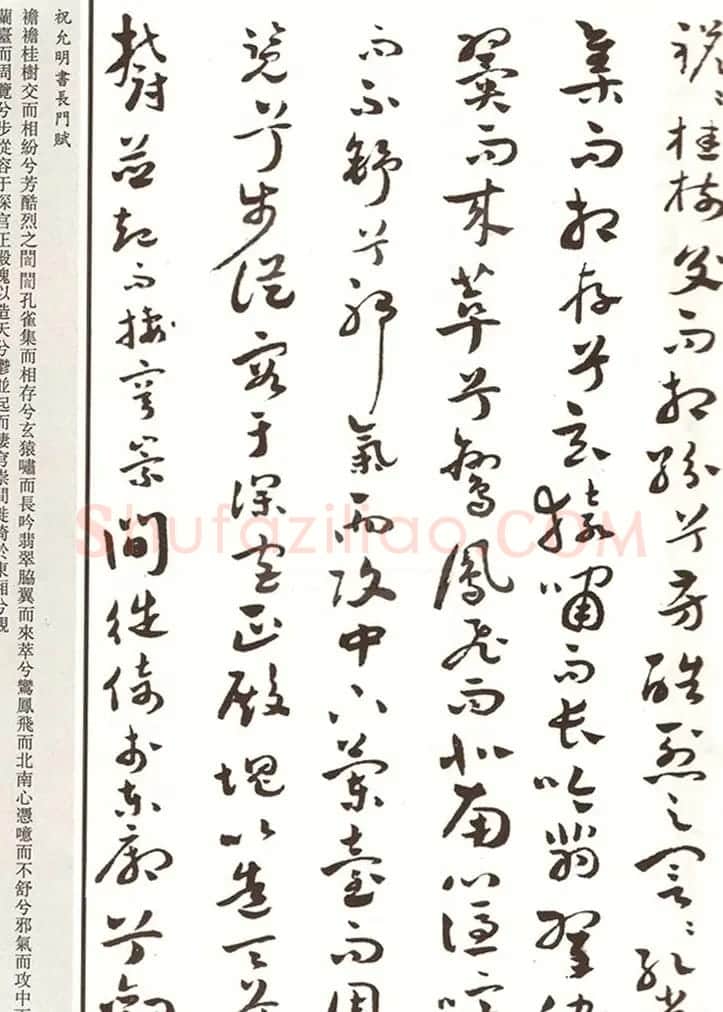 襜〻桂樹交而相紛兮芳酷烈之訚〻孔雀
集而相存兮玄猿嘯而長吟翡翠脇
翼而來萃兮鸞鳳飛而北南心憑噫
而不舒兮邪氣而攻中下蘭臺而周
覽兮步從容于深宫正殿塊以造天兮
鬱並起而棲穹崇間徙倚於東廂兮觀
祝允明書長門賦
襜襜桂樹交而相紛兮芳酷烈之誾誾孔雀集而相存兮玄猿嘯而長吟翡翠脇翼而來萃兮鸞鳳飛而北南心憑噫而不舒兮邪氣而攻中下
蘭臺而周覽兮步從容于深宫正殿塊以造天兮鬱並起而棲穹崇間徙倚於東廂兮觀
Shufaziliao.COM